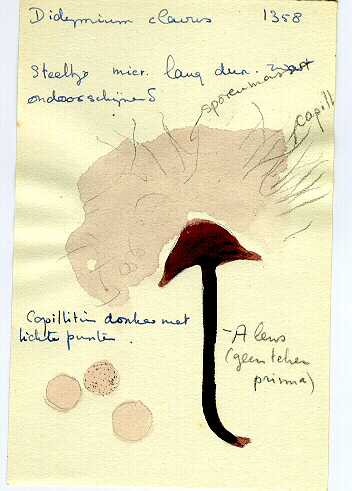 Didymium clavus 1358
Steeltje micr. lang dun. zwart
ondoorschijnend
sporenmassa
capill
Capillitium donker met
lichte punten.
A lens
prisma)